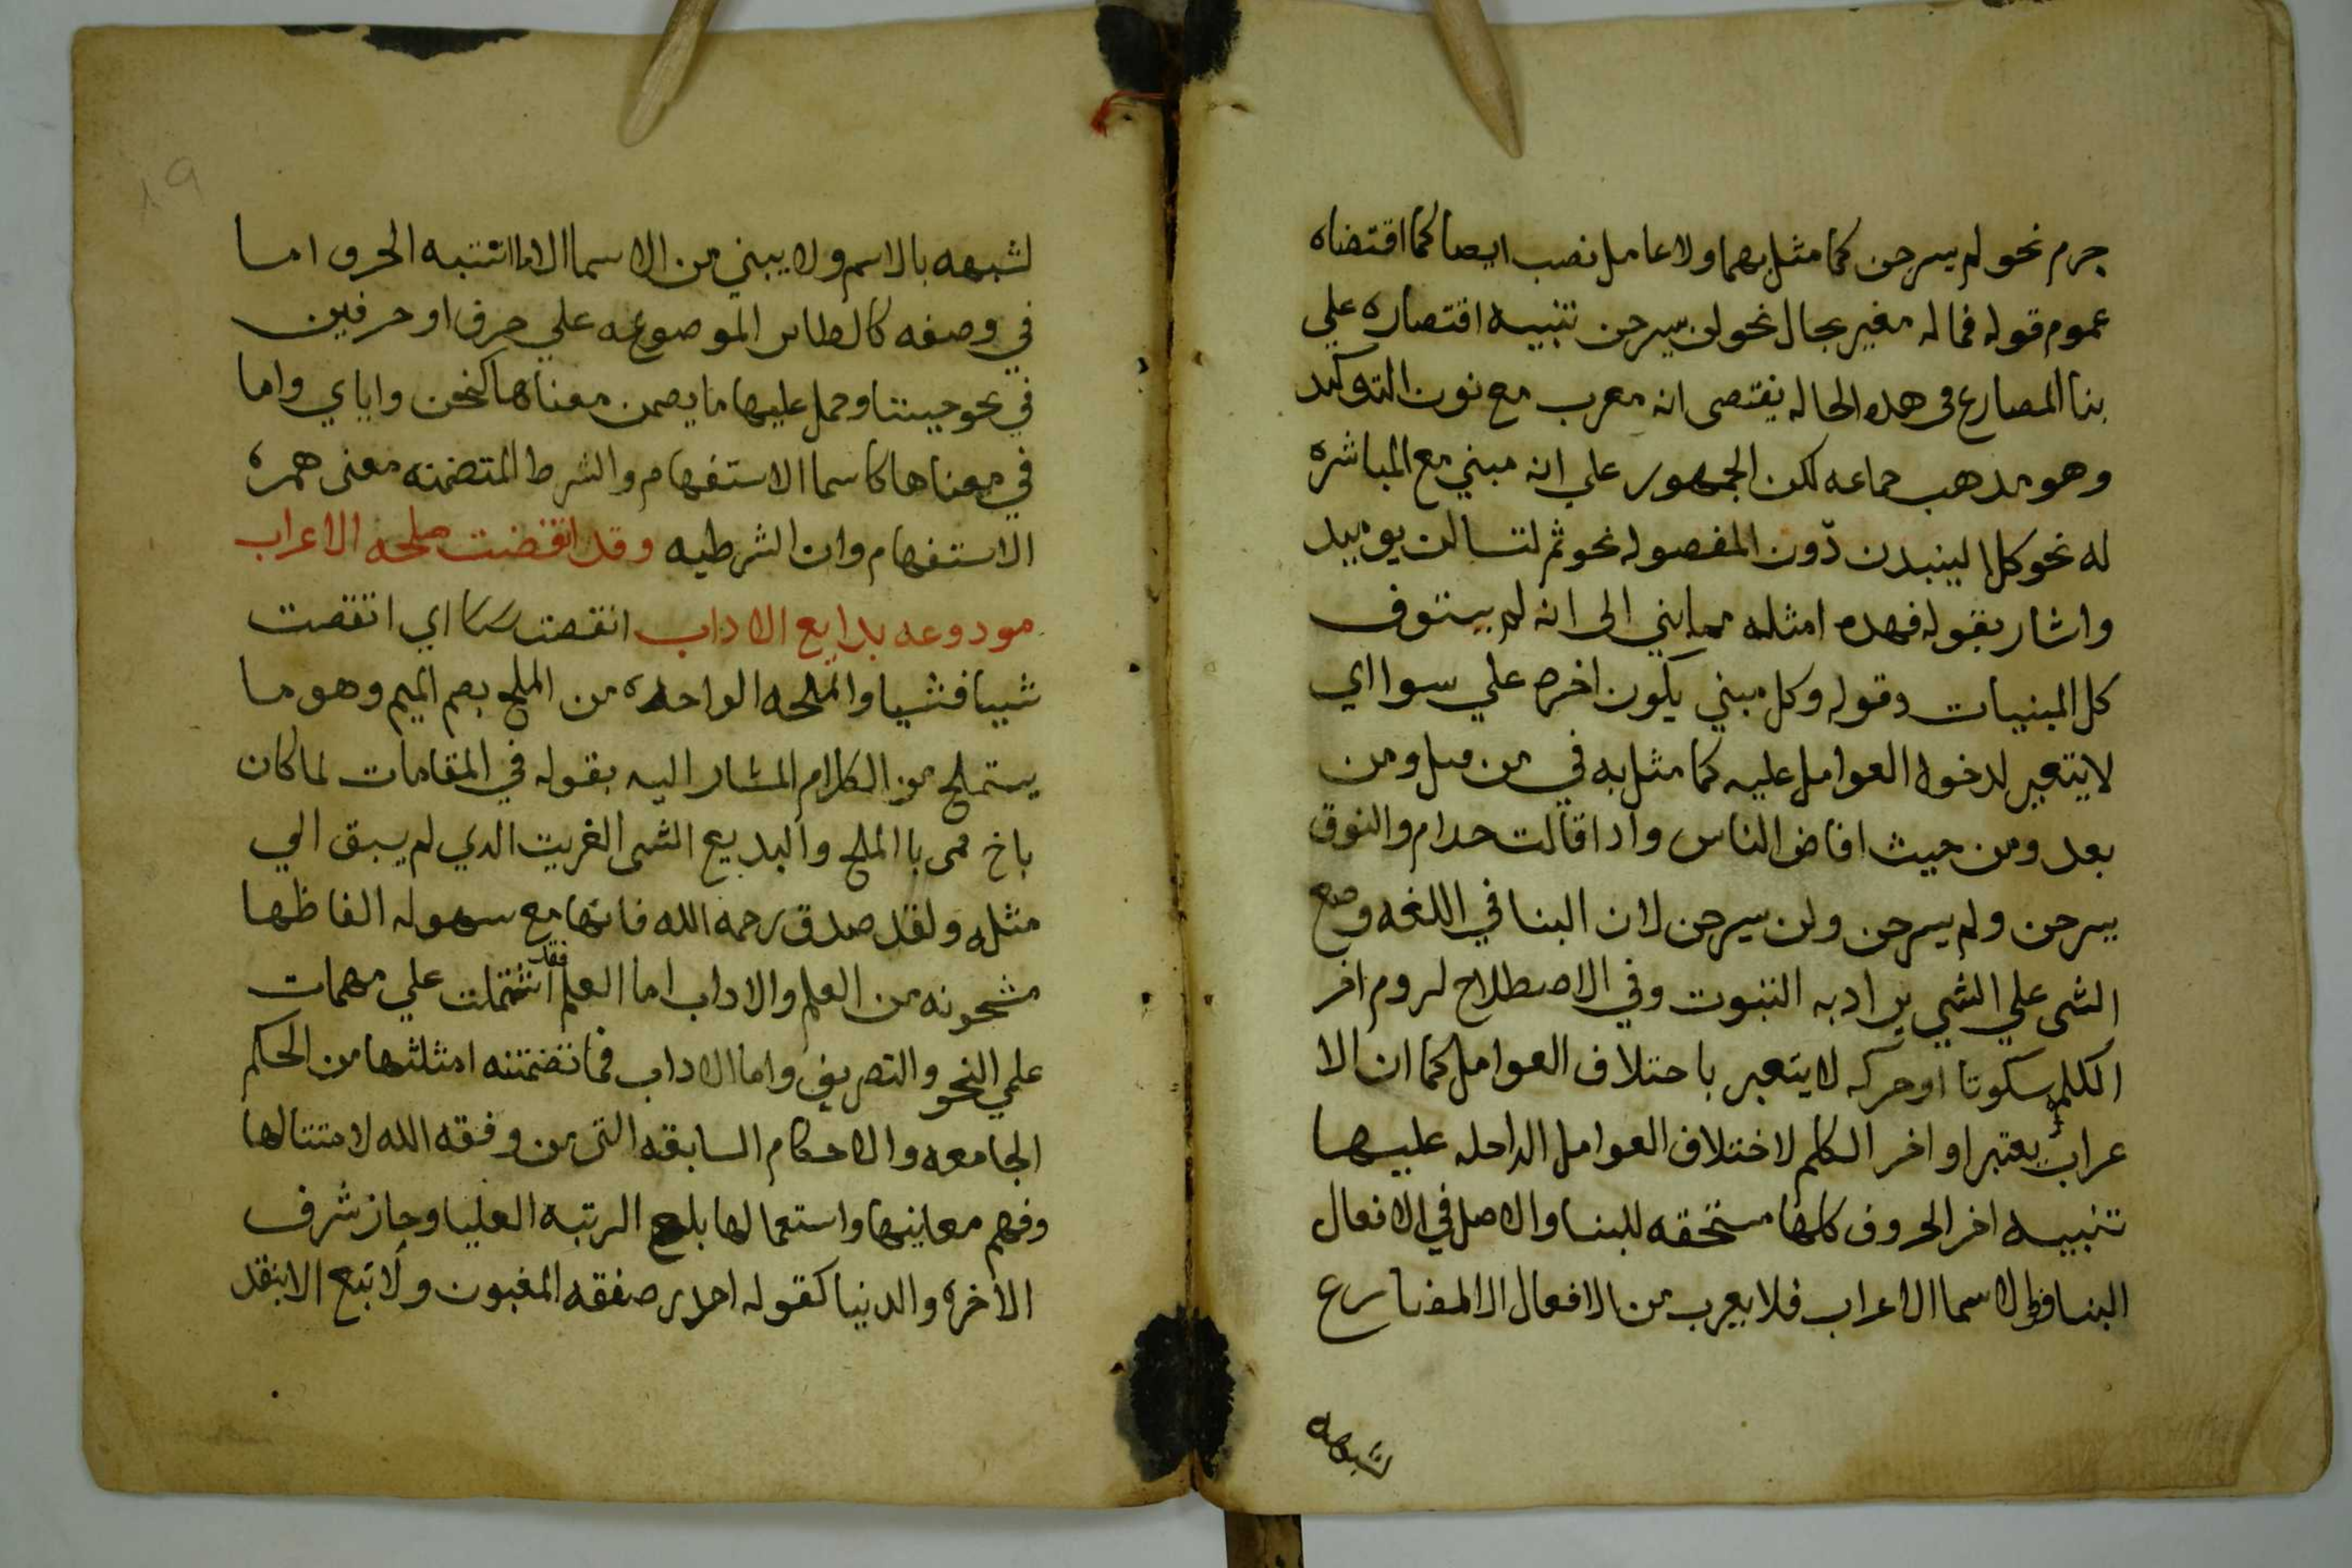 جرم نحو لم يسرحن كما مثل بهما ولا عامل نصب ايصا كما اقتضاه
عموم قوله فماله مغير بحال نحو لن يسرحن تنبيه اقتصاره علي
بنا المصارع فى هده الحاله يقتصى انه معرب مع نون التوكيد
وهو مدهب جماعه لكن الجمهور علي انه مبني مع المباشره
له نحو كلا لينبدن دون المفصوله نحو ثم لتسالن يوميد
واشار بقوله فهده امثله مما بني الى انه لم يستوف
كل المبنييات وقوله وكل مبني يكون اخره علي سوا اي
لا يتعير لدخول العوامل عليه كما مثل به في من قبل ومن
بعد ومن حيث افاض الناس وادا قالت حدام والنوق
يسرحن ولم يسرحن ولن يسرحن لان البنا في اللغه وضع
الشى علي الشي يراد به الثبوت وفي الاصطلاح لزوم اخر
الكلمه سكوتا او حركه لا يتعير باختلاف العوامل كما ان الا
عراب يعتبر اواخر الكلم لاختلاف العوامل الداخله عليها
تنبيه اخر الحروف كلها مستحقه للبنا والاصل في الافعال
البنا وفي الاسما الاعراب فلا يعرب من الافعال الا المضارع
لشبهه
لشبهه بالاسم ولا يبني من الاسما الا ما اشبه الحرف اما
في وصفه كالضاير الموضوعه علي حرف او حرفين
في نحو جيتنا وحمل عليها ما يضمن معناها كنحن واياي واما
في معناها كاسما الاستفهام والشرط المتضمنه معنى همزه
الاستفهام وان الشرطيه وقد انقضت ملحه الاعراب
مودوعه بدايع الاداب انقضت اي انقضت
شييا فشييا والملحه الواحده من الملح بصم الميم وهو ما
يستملح من الكلام المشار اليه بقوله في المقامات لما كان
باخ حمى با الملح والبديع الشى الغريب الدي لم يسبق الي
مثله ولقد صدق رحمه الله فانها مع سهوله الفاظها
مشحونه من العلم والاداب اما العلم فقد اشتملت علي مهمات
علمي النحو والتصريف واما الاداب فما تضمنته امثلتها من الحكم
الجامعه والاحكام السابقه التى من وفقه الله لامتثالها
وفهم معاينها واستعمالها بلغ الرتبه العليا وحاز شرف
الاخره والدنيا كقوله احدر صفقه المغبون ولا تبع الا بنقد